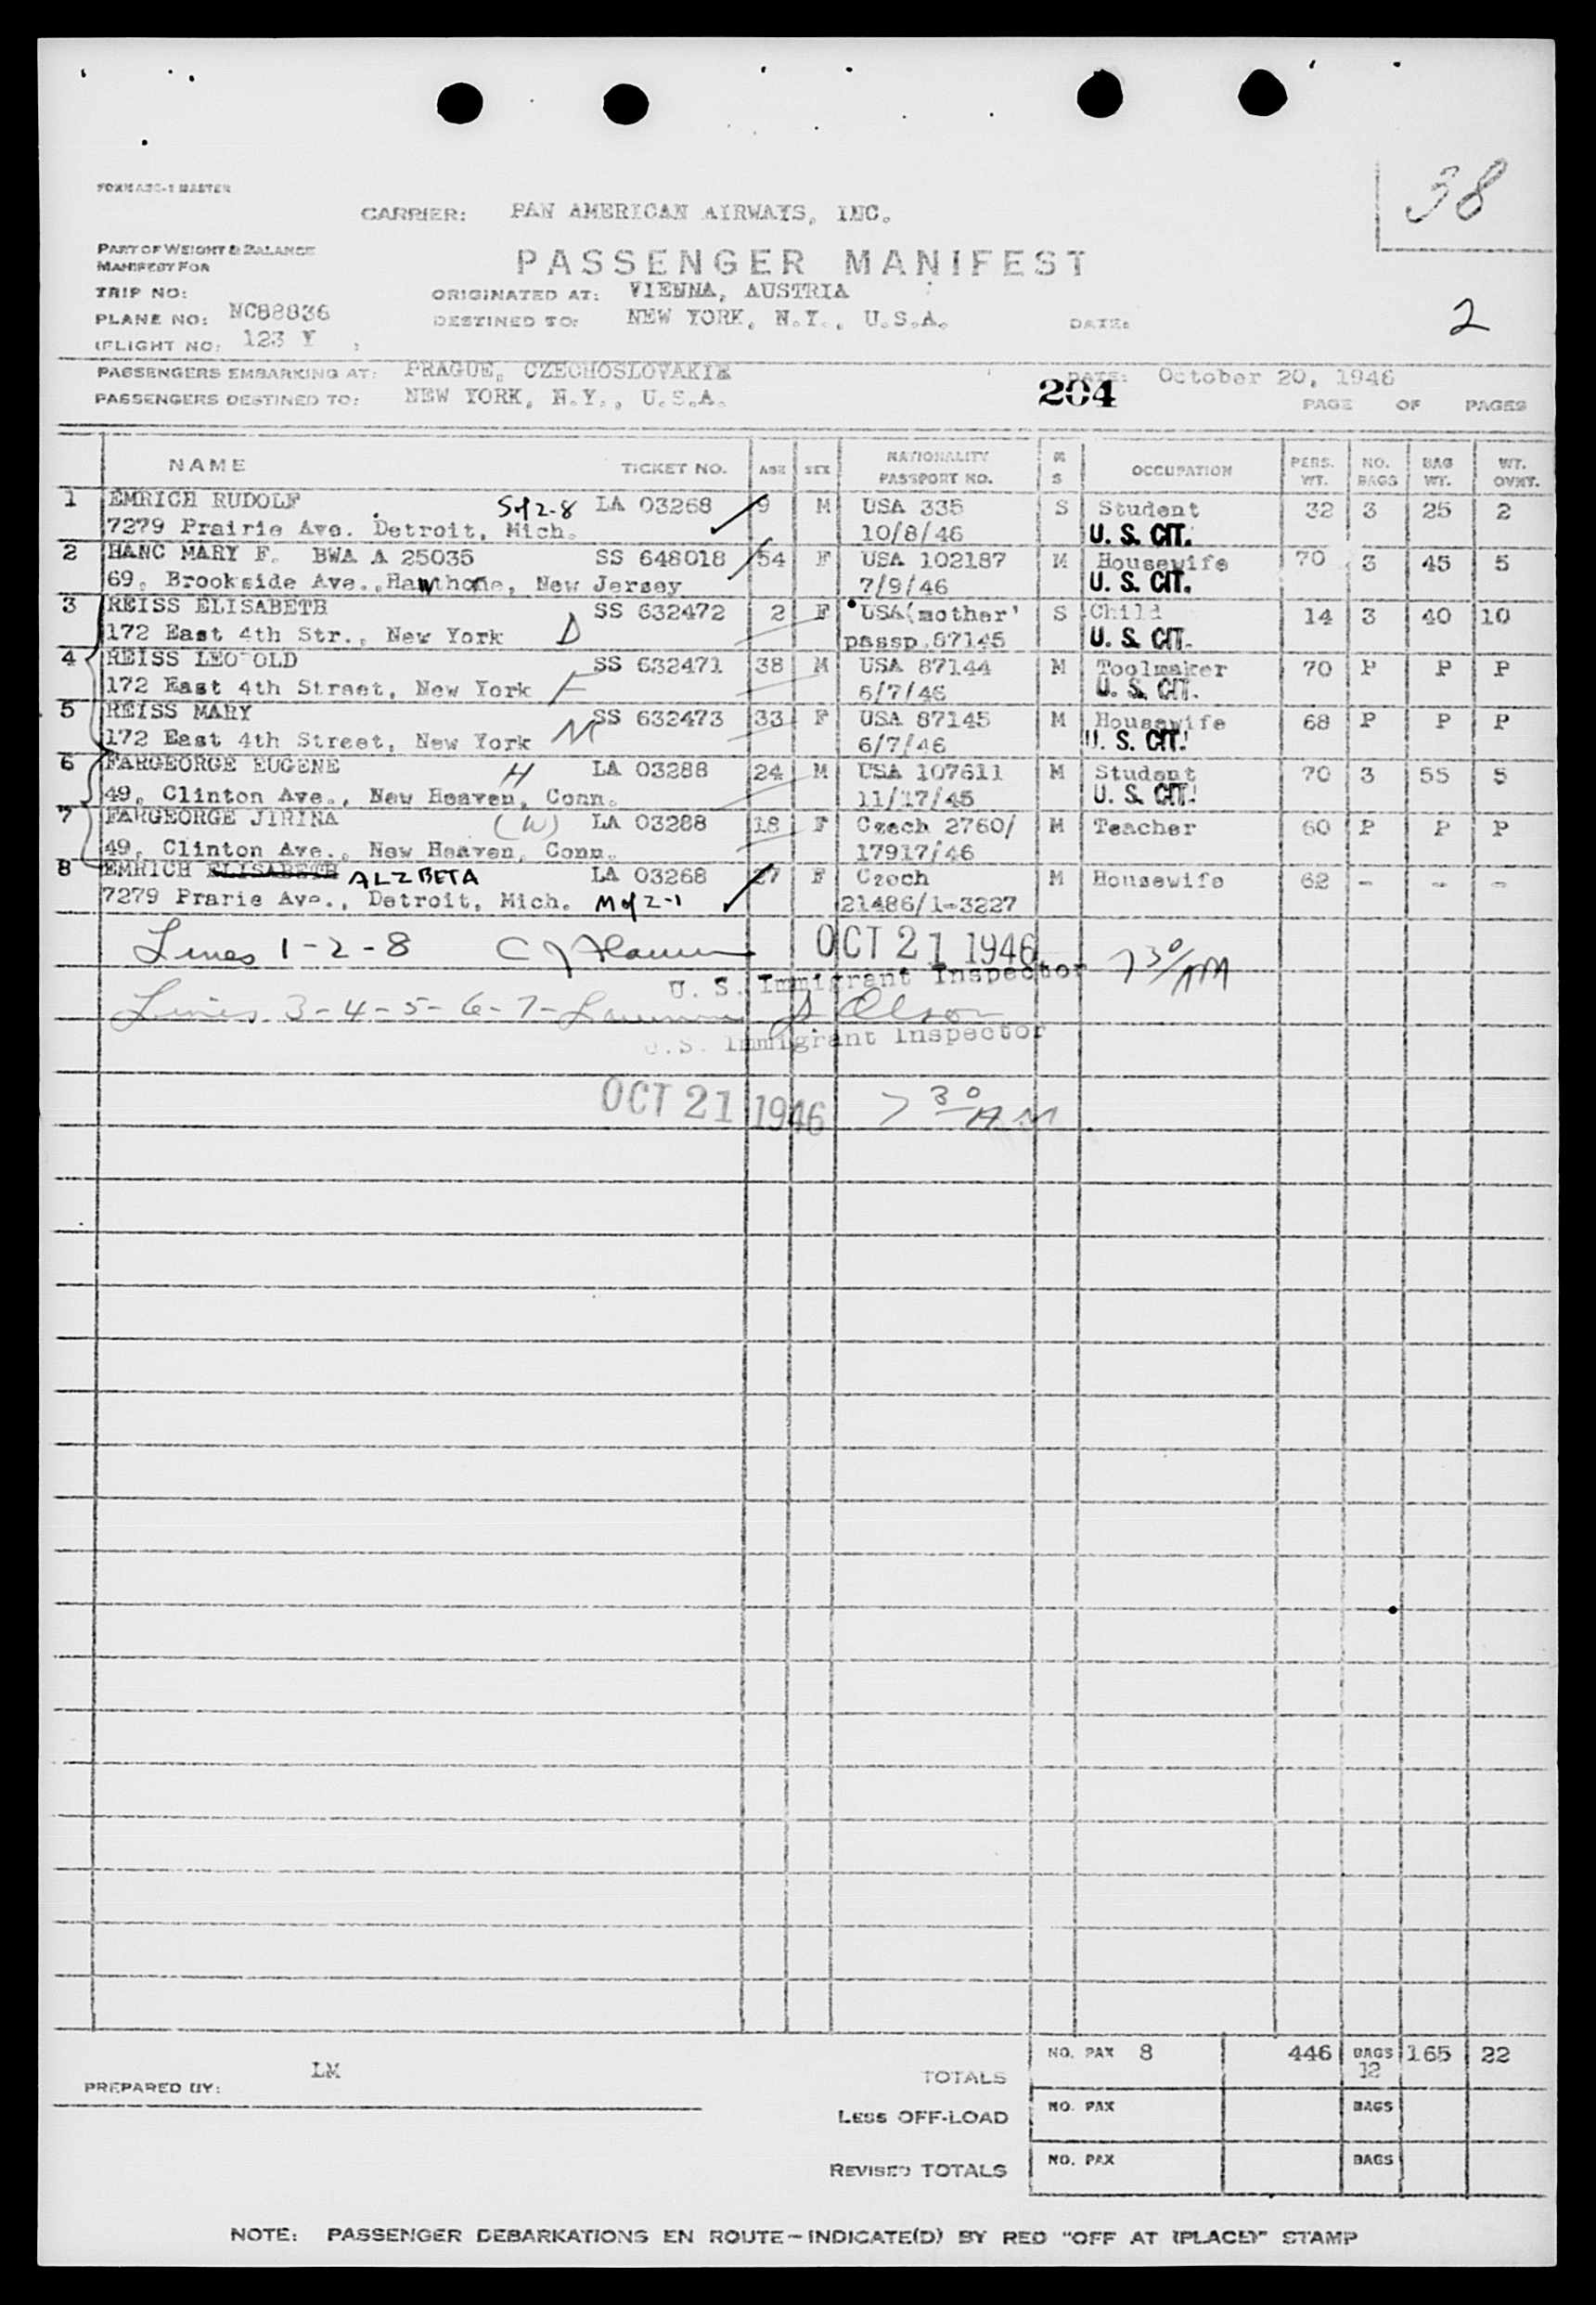 FORM ASC-1 MASTER
38
CARRIER: PAN AMERICAN AIRWAYS, INC.
PART OF WEIGHT & BALANCE
MANIFEST FOR
PASSENGER MANIFEST
TRIP NO:
ORIGINATED AT: VIENNA, AUSTRIA
PLANE NO: NC88836
DESTINED TO: NEW YORK, N.Y., U.S.A.
DATE:
2
(FLIGHT NO: 123 Y
PASSENGERS EMBARKING AT: PRAGUE, CZECHOSLOVAKIE
DATE: October 20, 1946
204
PASSENGERS DESTINED TO: NEW YORK, N.Y., U.S.A.
PAGE OF PAGES
NAME TICKET NO. AGE SEX NATIONALITY PASSPORT NO. M S OCCUPATION PERS. WT. NO. BAGS BAG WT. WT. OVNT.
1 EMRICH RUDOLF S of 2-8 LA 03268 9 M USA 335 S Student 32 3 25 2
7279 Prairie Ave. Detroit, Mich. 10/8/46 U. S. CIT.
2 HANC MARY F. BWA A 25035 SS 648018 54 F USA 102187 M Housewife 70 3 45 5
69, Brookside Ave., Hawthorne, New Jersey 7/9/46 U. S. CIT.
3 REISS ELISABETH SS 632472 2 F USA(mother' S Child 14 3 40 10
172 East 4th Str., New York D passp.87145 U. S. CIT.
4 REISS LEO OLD SS 632471 38 M USA 87144 M Toolmaker 70 P P P
172 East 4th Street, New York F 6/7/46 U. S. CIT.
5 REISS MARY SS 632473 33 F USA 87145 M Housewife 68 P P P
172 East 4th Street, New York M 6/7/46 U. S. CIT.
6 FARGEORGE EUGENE H LA 03288 24 M USA 107611 M Student 70 3 55 5
49, Clinton Ave., New Heaven, Conn. 11/17/45 U. S. CIT.
7 FARGEORGE JIRINA (W) LA 03288 18 F Czech 2760/ M Teacher 60 P P P
49, Clinton Ave., New Heaven, Conn. 17917/46
8 EMRICH ELISABETH ALZBETA LA 03268 27 F Czech M Housewife 62 - - -
7279 Prarie Ave., Detroit, Mich. M of 2-1 21486/1-3227
Lines 1-2-8 OCT 21 1946 7 30/AM
U. S. Immigrant Inspector
Lines 3-4-5-6-7- Olson
U.S. Immigrant Inspector
OCT 21 1946 7 30 AM
PREPARED BY: LM
TOTALS NO. PAX 8 446 BAGS 12 165 22
LESS OFF-LOAD NO. PAX BAGS
REVISED TOTALS NO. PAX BAGS
NOTE: PASSENGER DEBARKATIONS EN ROUTE-INDICATE(D) BY RED "OFF AT (PLACE)" STAMP